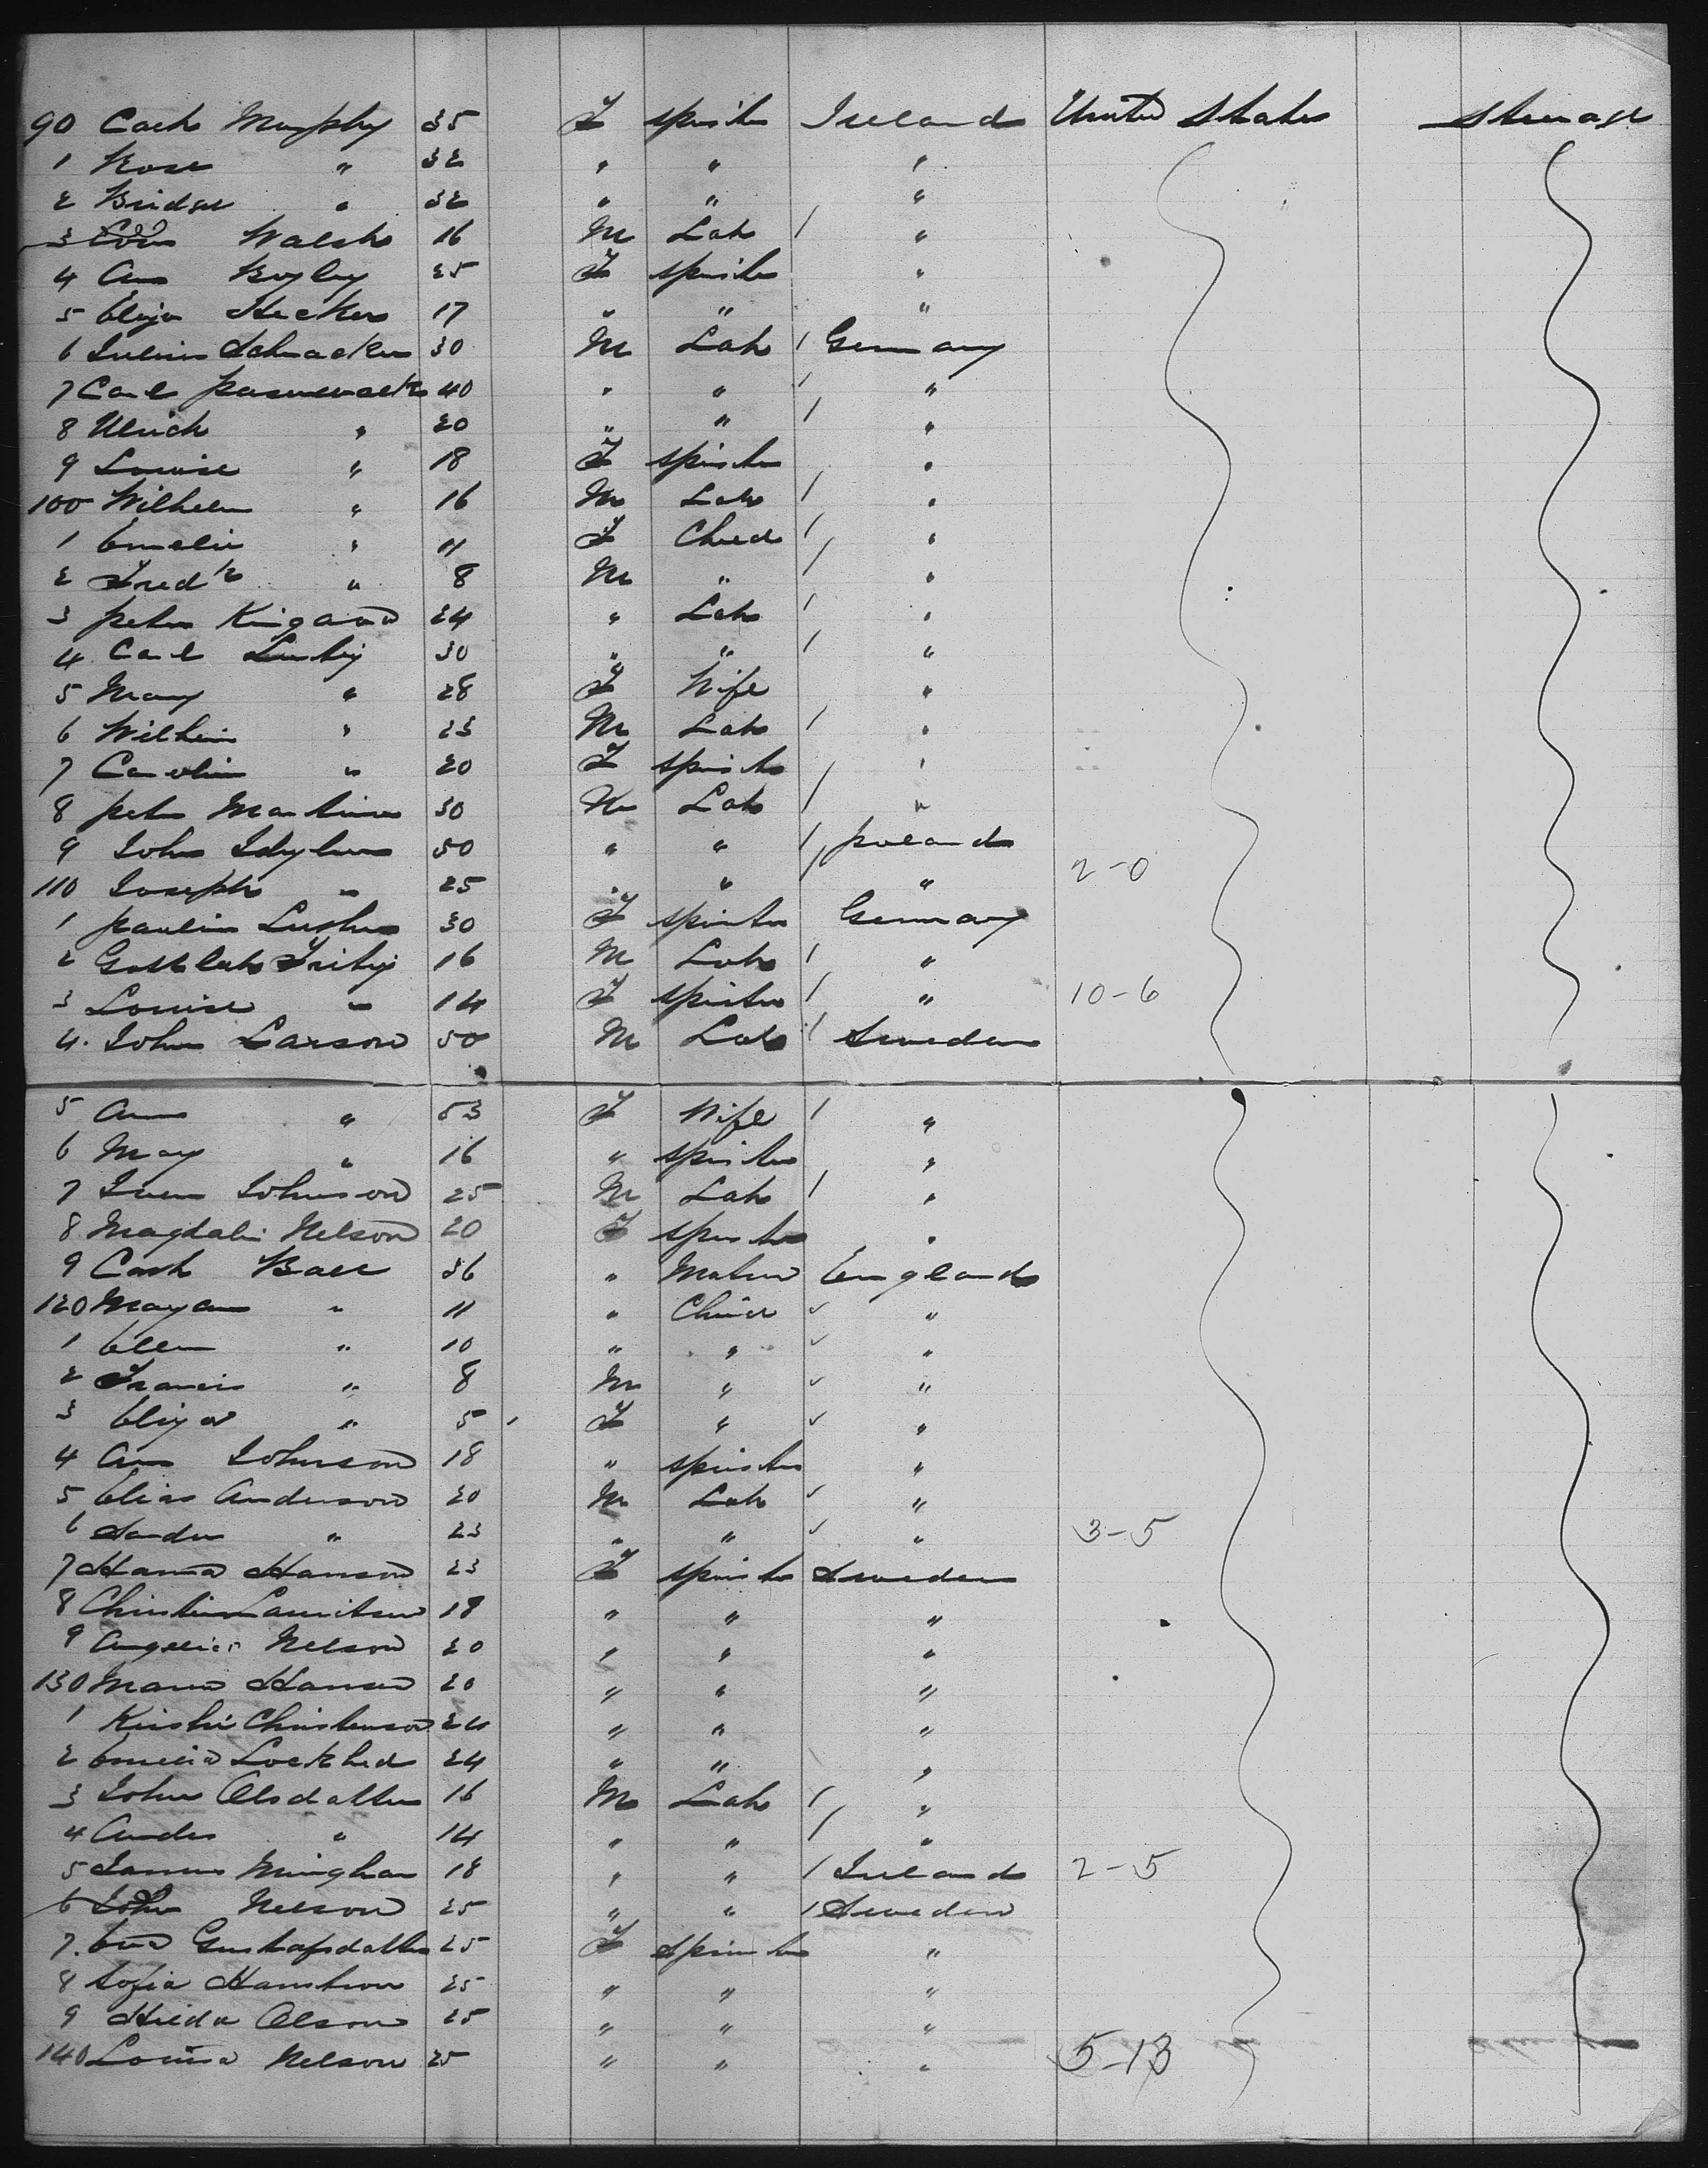 90 Cath Murphy 35 F spinster Ireland United States Steerage
1 Rose " 32 " " "
2 Bridget " 32 " " "
3 Walsh 16 M Lab / "
4 Ann Bogley 25 F spinster "
5 Eliza Hecker 17 " " "
6 Julius Schnacker 30 M Lab / Germany
7 Carl 40 " " / "
8 Ulrich " 20 " " / "
9 Louise " 18 F spinster "
100 Wilhelm " 16 M Lab / "
1 Emelie " 11 F Child / "
2 Fredk " 8 M " / "
3 Peter 24 " Lab / "
4 Carl 30 " " / "
5 Mary " 28 F Wife "
6 Wilhelm " 23 M Lab / "
7 Carolin " 20 F spinster "
8 Peter 30 M Lab / "
9 John 50 " " / Poland
110 Joseph " 25 " " / " 2-0
1 Paulin 30 F spinster Germany
2 Gottlieb 16 M Lab / "
3 Louise " 14 F spinster / " 10-6
4 John Larson 50 M Lab / Sweden
5 Ann " 53 F Wife / "
6 May " 16 " spinster "
7 Sven Johnson 25 M Lab / "
8 Magdalin Nelson 20 F spinster "
9 Cath Ball 36 " Matron England
120 Mayann " 11 " Child ✓ "
1 Ellen " 10 " " ✓ "
2 Francis " 8 M " ✓ "
3 Eliza " 5 F " ✓ "
4 Ann Johnson 18 " spinster "
5 Elias Anderson 20 M Lab ✓ "
6 Sander " 23 " " ✓ " 3-5
7 Hanna Hanson 23 F spinster Sweden
8 Christin Lauritsen 18 " " "
9 Angelica Nelson 20 " " "
130 Maria Hansen 20 " " "
1 Kirstin Christenson 24 " " "
2 Emelia Lockhed 24 " " "
3 John Olsdatter 16 M Lab / "
4 Andes " 14 " " / "
5 James Minghan 18 " " / Ireland 2-5
6 John Nelson 25 " " / Sweden
7 Eva Gustafsdatter 25 F spinster "
8 Sofia Hanstrom 25 " " "
9 Hilda Olson 25 " " "
140 Louisa Nelson 25 " " " 5-13